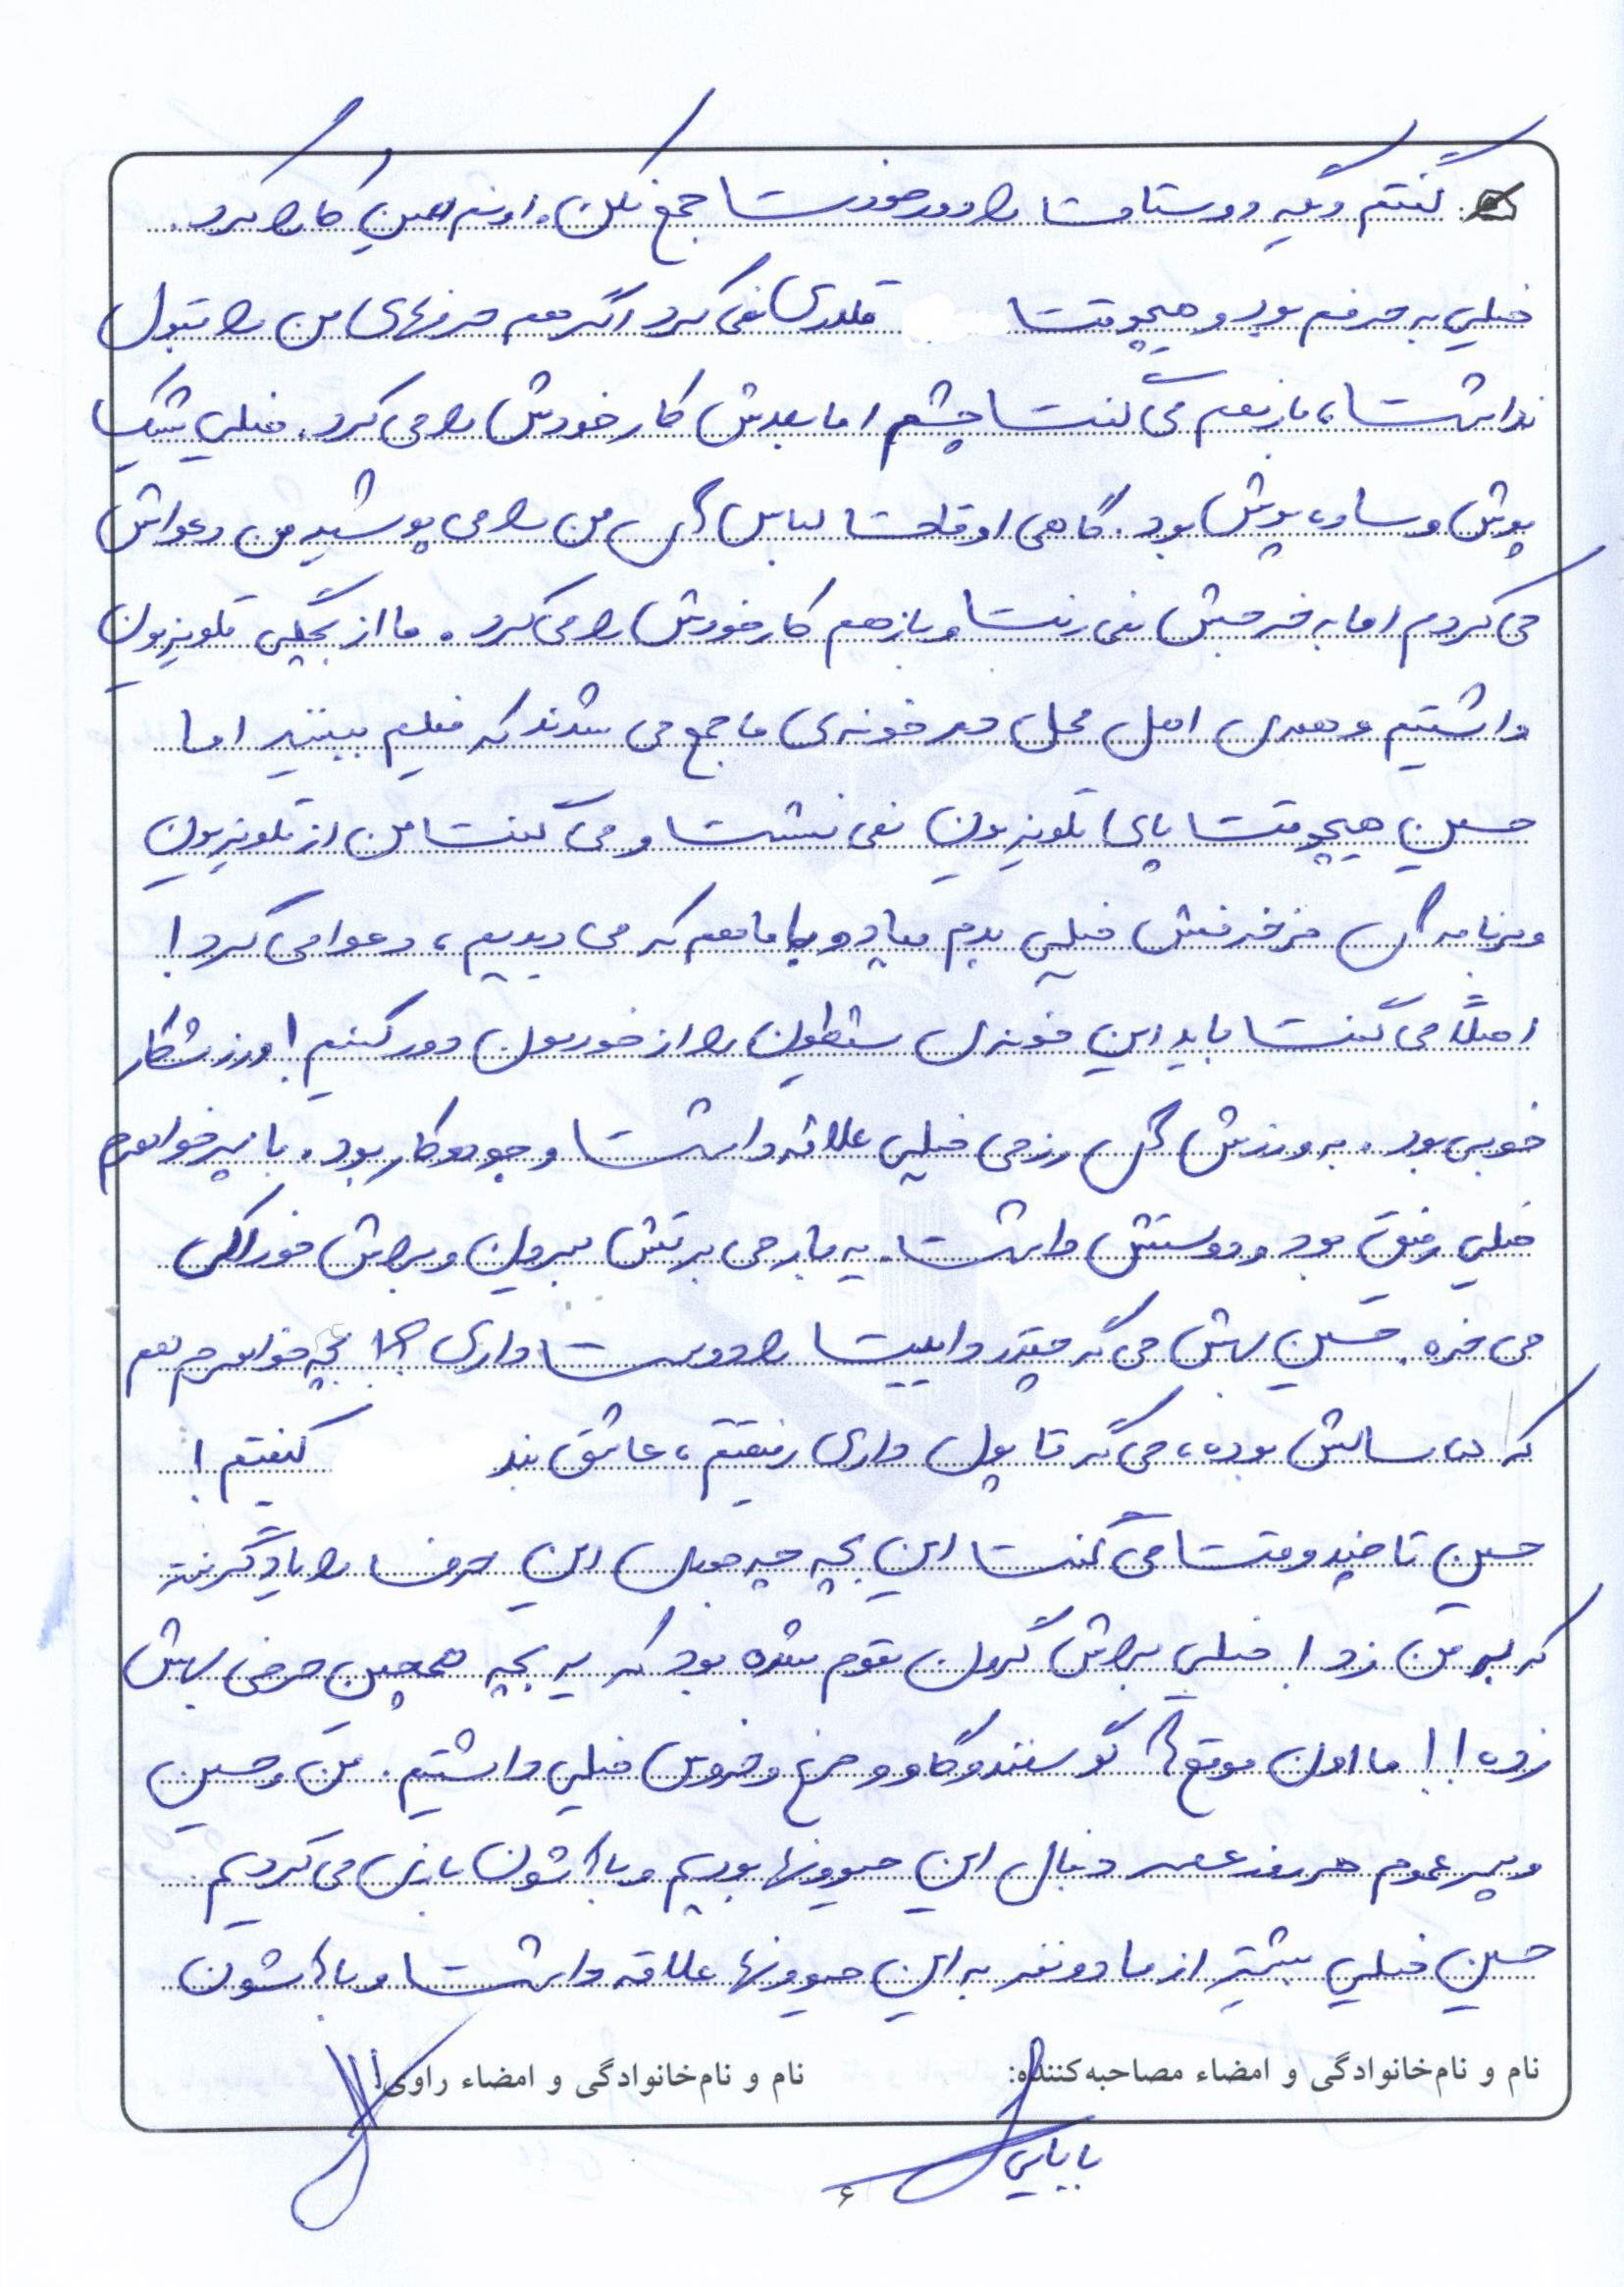 گفتم دیگه دوستات را دور خودت جمع نکن. اونم همین کار را کرد.
خیلی به حرفم بود و هیچوقت قلدری نمی کرد اگر هم حرفهای من را قبول
نداشت، باز هم می گفت چشم اما بعدش کار خودش را می کرد. خیلی شیک
پوش و ساده پوش بود. گاهی اوقات لباس های من را می پوشید من دعواش
می کردم اما به خرجش نمی رفت و باز هم کار خودش را می کرد. ما از بچگی تلویزیون
داشتیم و همه ی اهل محل در خونه ی ما جمع می شدند که فیلم ببینند اما
حسین هیچوقت پای تلویزیون نمی نشست و می گفت من از تلویزیون
و برنامه های مزخرفش خیلی بدم میاد و با ما هم که می دیدیم، دعوا می کرد!
اصلاً می گفت باید این خونه ی شیطون را از خودمون دور کنیم! ورزشکار
خوبی بود. به ورزش های رزمی خیلی علاقه داشت و جودو کار بود. با پسر خواهرم
خیلی رفیق بود و دوستش داشت. یه بار می برتش بیرون و براش خوراکی
می خره. حسین بهش می گه چقدر داییت را دوست داری؟! بچه خواهرم هم
که سالش بوده، می گه تا پول داری رفیقتم، عاشق بند کیفتم!
حسین تا چند وقت می گفت این بچه چه جوری این حرف را یاد گرفته
که به من زد! خیلی براش گرون تموم شده بود که یه بچه همچین حرفی بهش
زده!! ما اون موقع ها گوسفند و گاو و مرغ و خروس خیلی داشتیم. من و حسین
و پسر عموم هر روز عصر دنبال این حیوونها بودیم و باهاشون بازی می کردیم.
حسین خیلی بیشتر از ما دو نفر به این حیوونها علاقه داشت و باهاشون
نام و نام‌خانوادگی و امضاء مصاحبه‌کننده: نام و نام‌خانوادگی و امضاء راوی:
بابایی
۶